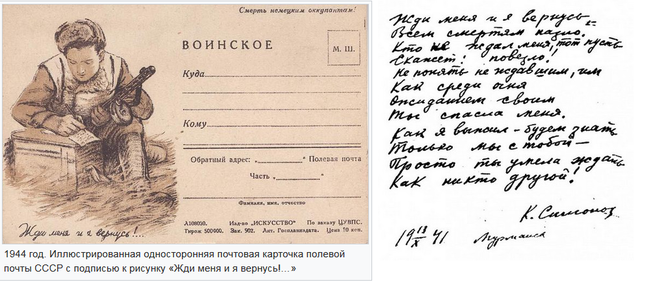 Смерть немецким оккупантам!
ВОИНСКОЕ
М. Ш.
Куда
Кому
Обратный адрес:
Полевая почта
Часть
Фамилия, имя, отчество
Изд-во „ИСКУССТВО" По заказу ЦУВПС.
Тираж 500000. Зак. 902. Арт. Госполиздата. Цена 10 коп.
Жди меня и я вернусь!...
1944 год. Иллюстрированная односторонняя почтовая карточка полевой
почты СССР с подписью к рисунку «Жди меня и я вернусь!…»
Жди меня и я вернусь
Всем смертям назло.
Кто не ждал меня, тот пусть
Скажет: повезло!
Не понять не ждавшим, им
Как среди огня
Ожиданием своим
Ты спасла меня.
Как я выжил - будем знать
Только мы с тобой -
Просто ты умела ждать
Как никто другой!
К. Симонов
19 13/X 41 Мурманск